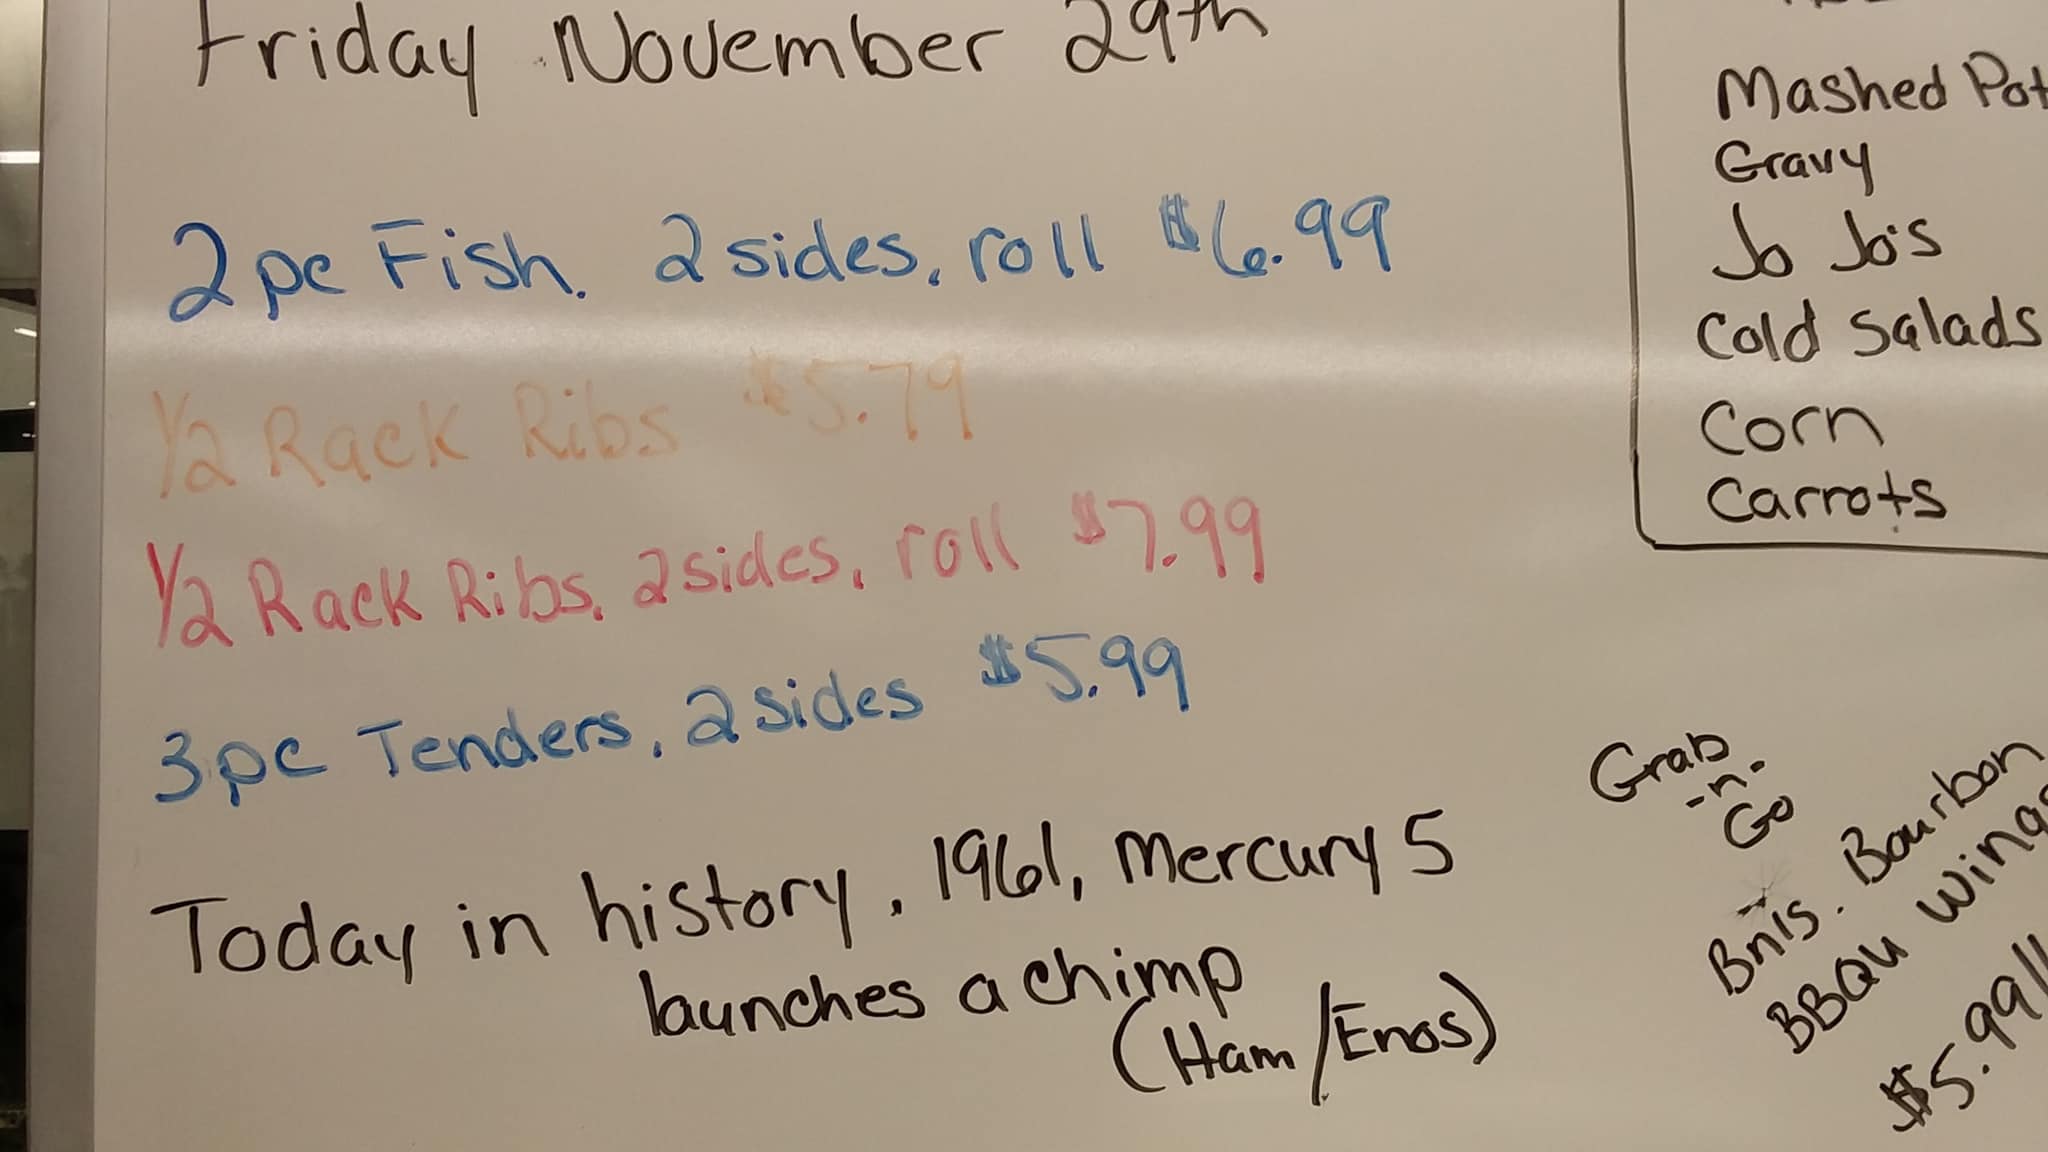 Friday November 29th
2pc Fish, 2 sides, roll $6.99
1/2 Rack Ribs $5.79
1/2 Rack Ribs, 2 sides, roll $7.99
3pc Tenders, 2 sides $5.99
Today in history, 1961, Mercury 5
launches a chimp
(Ham/Enos)
Mashed Pot
Gravy
Jo Jo's
Cold Salads
Corn
Carrots
Grab
-n-
Go
Bnls. Bourbon
BBQ Wings
$5.99/